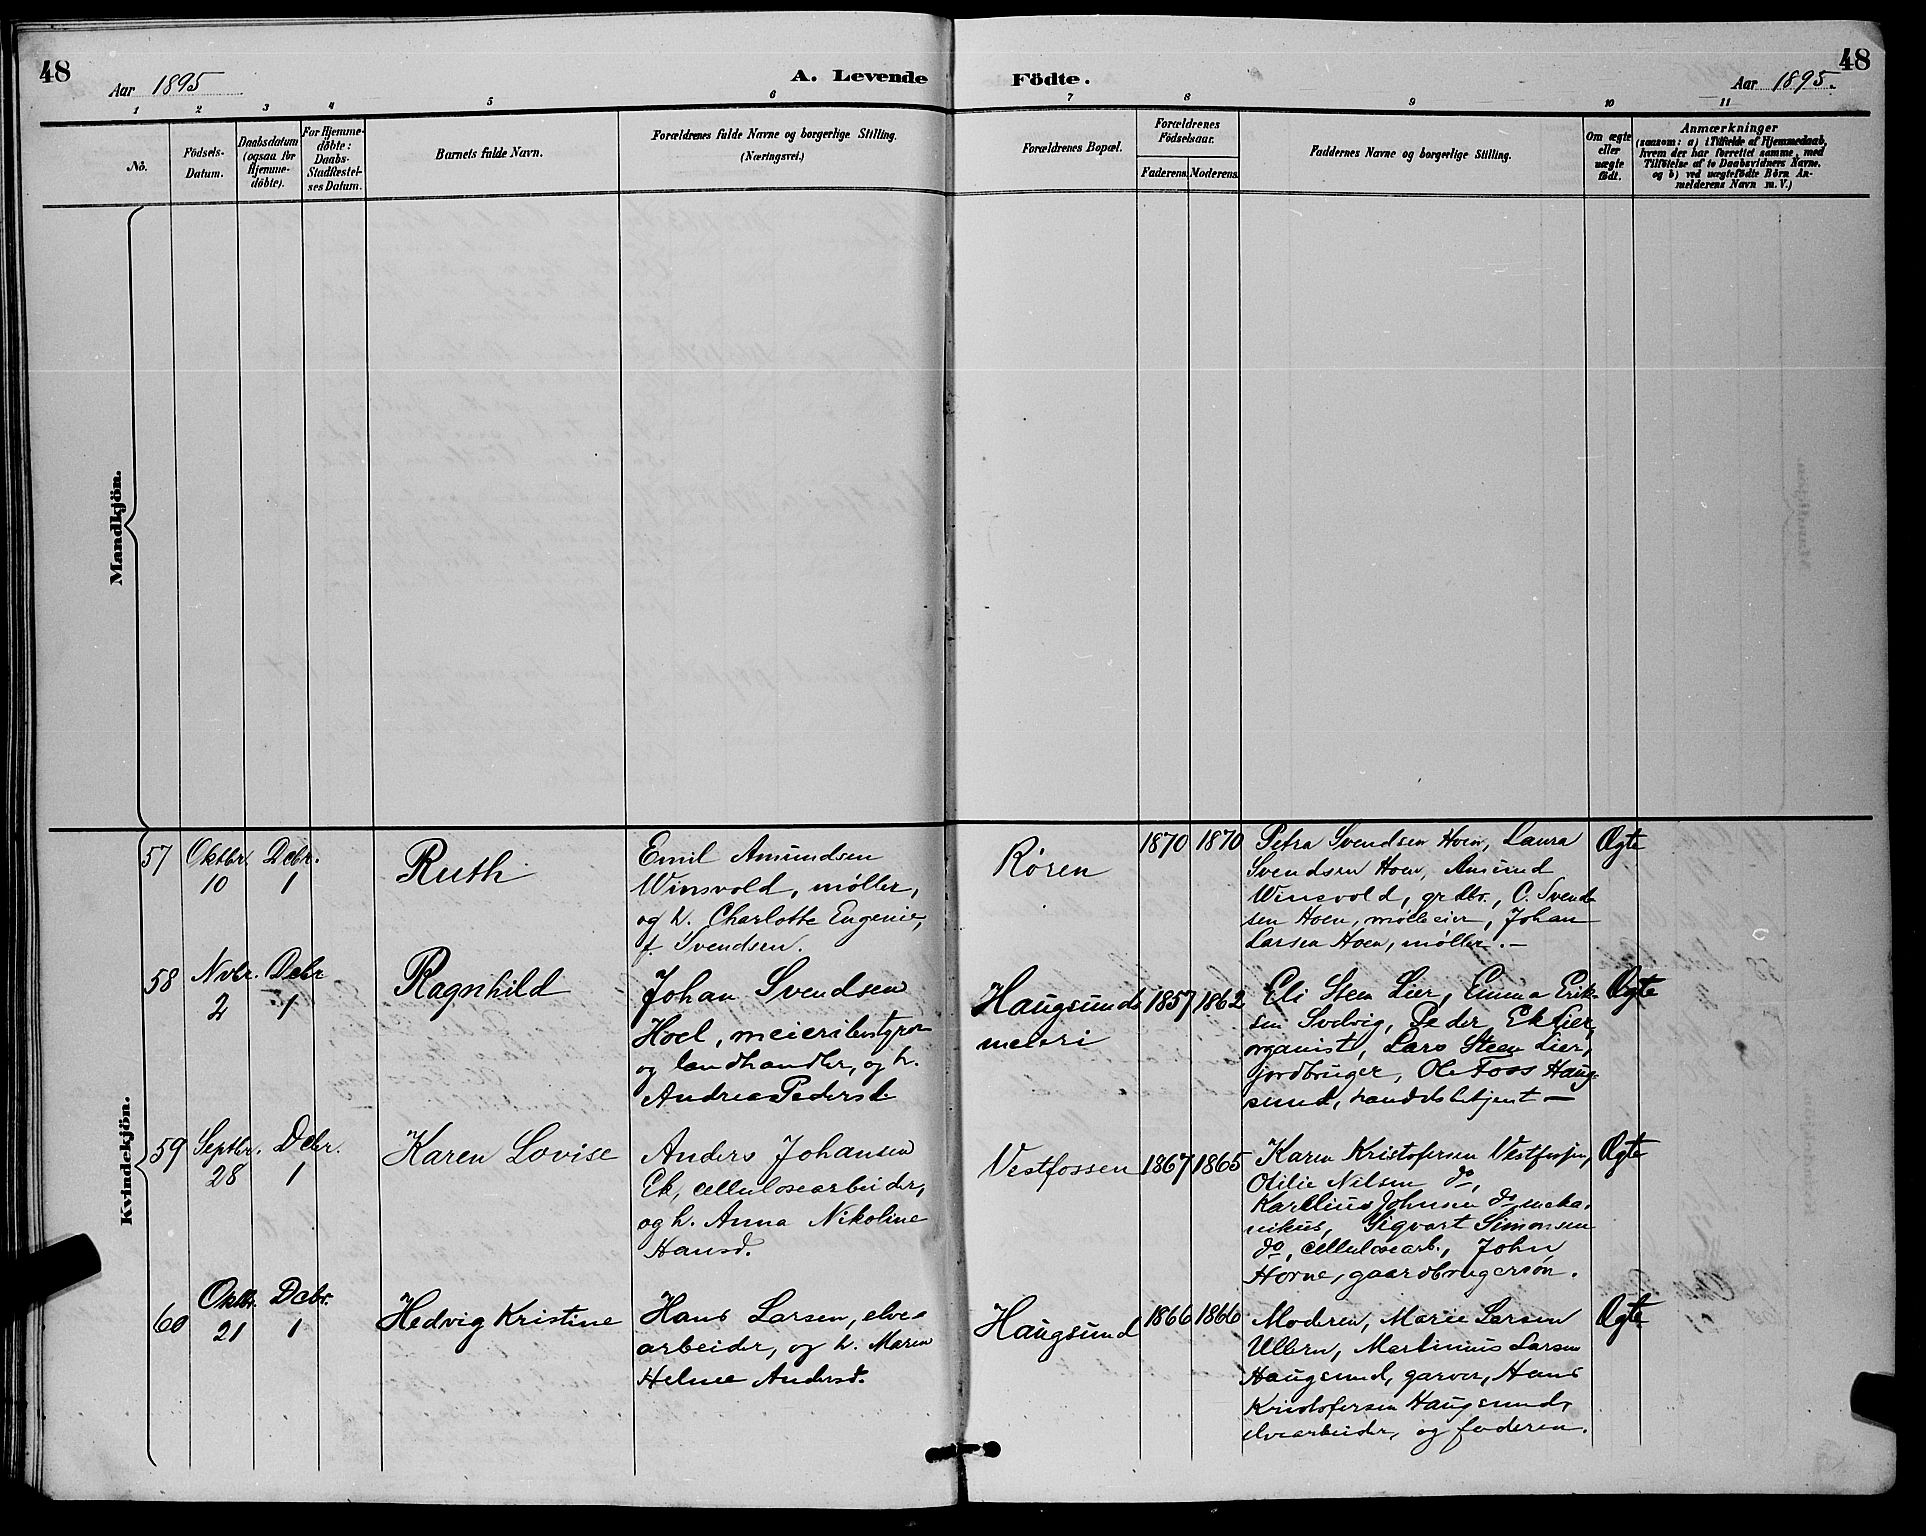 48
Aar 1895
A. Levende
Födte.
Aar 1895.
48
1 2 3 4 5 6 7 8 9 10 11
No.
Födsels-
Datum.
Daabsdatum
(ogsaa for
Hjemme-
döbte).
For Hjemme-
döbte:
Daabs-
Stadfæstel-
ses Datum.
Barnets fulde Navn.
Forældrenes fulde Navne og borgerlige Stilling.
(Næringsvei.)
Forældrenes Bopæl.
Forældrenes
Födselsaar.
Faderens. Moderens.
Faddernes Navne og borgerlige Stilling.
Om ægte
eller
uægte
födt.
Anmærkninger
(saasom: a) i Tilfælde af Hjemmedaab,
hvem der har forrettet samme, med
Tilföielse af to Daabsvidners Navne,
og b) ved uægtefödte Börn An-
melderens Navn m. V.)
Mandkjön.
Kvindekjön.
57
Oktbr.
10
Dcbr.
1
Ruth
Emil Amundsen
Winsvold, møller,
og h. Charlotte Eugenie,
f. Svendsen.
Røren
1870 1870
Petra Svendsen Hoen, Laura
Svendsen Hoen, Amund
Winsvold, grdbr., C. Svend-
sen Hoen, mølleeier, Johan
Larsen Hoen, møller. —
Ægte
58
Nvbr.
2
Dcbr
1
Ragnhild
Johan Svendsen
Hoel, meieribestyrer
og landhandler, og h.
Andrea Pedersd.
Haugsunds
meieri
1857 1862
Eli Steen Lier, Emma Erik-
sen Svelvig, Peder Ek Lier,
organist, Lars Steen Lier,
jordbruger, Ole Foss Haug-
sund, handelsbetjent —
Ægte
59
Septbr.
28
Dcbr.
1
Karen Lovise
Anders Johansen
Ek, cellulosearbeider,
og h. Anna Nikoline
Hansd.
Vestfossen
1867 1865
Karen Kristofersen Vestfossen,
Otilie Nilsen do,
Karelius Johnsen do, meka-
nikus, Sigvart Simonsen
do, cellulosearb., John
Horne, gaardbrugersøn.
Ægte
60
Oktbr.
21
Dcbr.
1
Hedvig Kristine
Hans Larsen, elve-
arbeider, og h. Maren
Helene Andersd.
Haugsund
1866 1866
Moderen, Marie Larsen
Ullern, Martinius Larsen
Haugsund, garver, Hans
Kristofersen Haugsund,
elvearbeider, og faderen.
Ægte